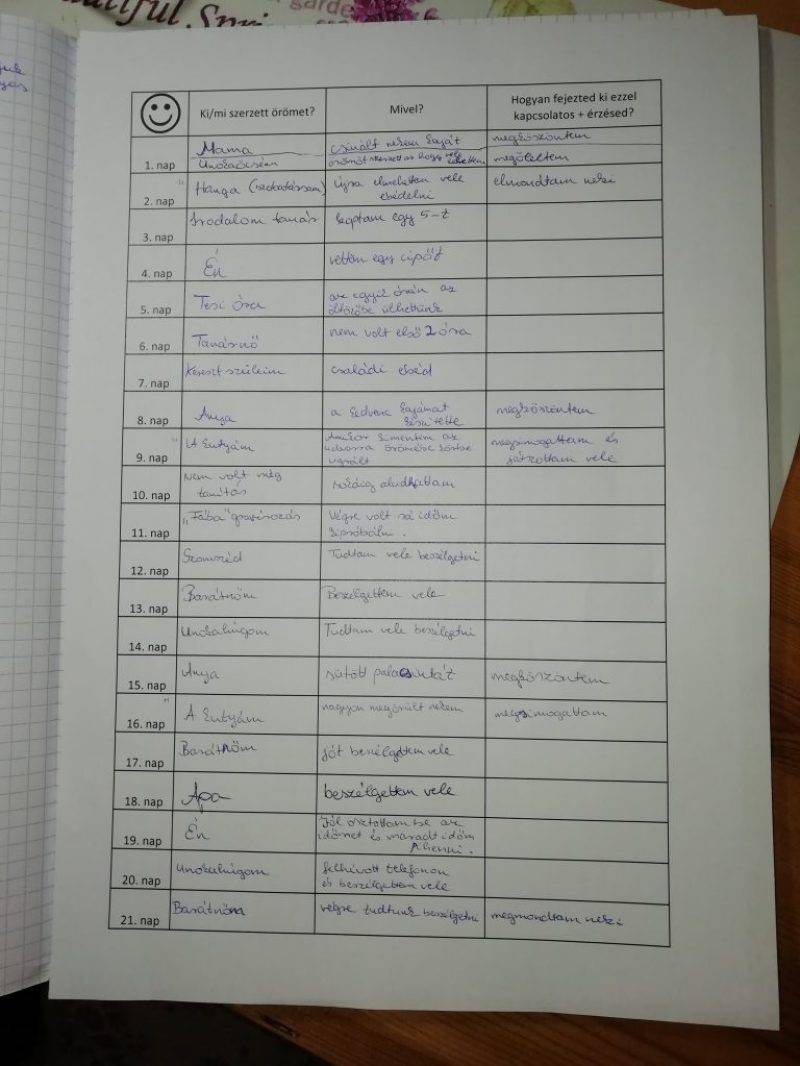 Beautiful Spri
garde
Ki/mi szerzett örömet?
Mivel?
Hogyan fejezted ki ezzel
kapcsolatos + érzésed?
1. nap
Mama
csinált nekem kaját
megköszöntem
Unokaöcsém
örömöt okozott az hogy vele lehettem
megöleltem
2. nap
Hanga (szobatársam)
újra elmehettem vele
ebédelni
elmondtam neki
3. nap
Irodalom tanár
kaptam egy 5-t
4. nap
Én
vettem egy cipőt
5. nap
Tesi óra
az egyik órán az
öltözőbe ülhettünk
6. nap
Tanárnő
nem volt első 2 óra
7. nap
Keresztszüleim
családi ebéd
8. nap
Anya
a kedvenc kajámat
készítette
megköszöntem
9. nap
A kutyám
Amikor kimentem az
udvarra örömébe körbe
ugrált
megsimogattam és
játszottam vele
10. nap
Nem volt még
tanítás
sokáig aludhattam
11. nap
"Fába" gravírozás
Végre volt rá időm
kipróbálni.
12. nap
Szomszéd
Tudtam vele beszélgetni
13. nap
Barátnőm
Beszélgettem vele
14. nap
Unokahúgom
Tudtam vele beszélgetni
15. nap
Anya
sütött palacsintát
megköszöntem
16. nap
A kutyám
nagyon megörült nekem
megsimogattam
17. nap
Barátnőm
jót beszélgettem vele
18. nap
Apa
beszélgettem vele
19. nap
Én
Jól osztottam be az
időmet és maradt időm
pihenni.
20. nap
Unokahúgom
felhívott telefonon
és beszélgettem vele
21. nap
Barátnőm
végre tudtunk beszélgetni
megmondtam neki